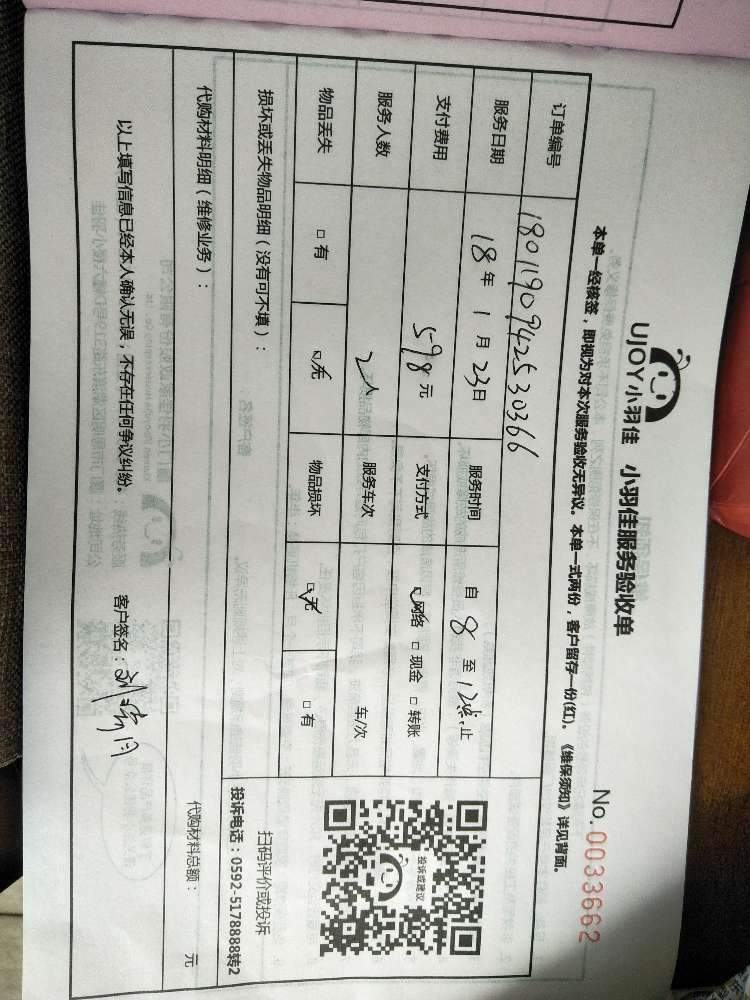 UJOY小羽佳 小羽佳服务验收单
No.0033662
本单一经核签，即视为对本次服务验收无异议。本单一式两份，客户留存一份(红)。《维保须知》详见背面。
订单编号 180119094253 0366
服务日期 18年1月23日 服务时间 自8至12点止
支付费用 598元 支付方式 网络 现金 转账
服务人数 2人 服务车次 车/次
物品丢失 有 无 物品损坏 无 有
损坏或丢失物品明细（没有可不填）：
投诉或建议
扫码评价或投诉
投诉电话：0592-5178888转2
代购材料明细（维修业务）：
代购材料总额： 元
以上填写信息已经本人确认无误，不存在任何争议纠纷。 客户签名：